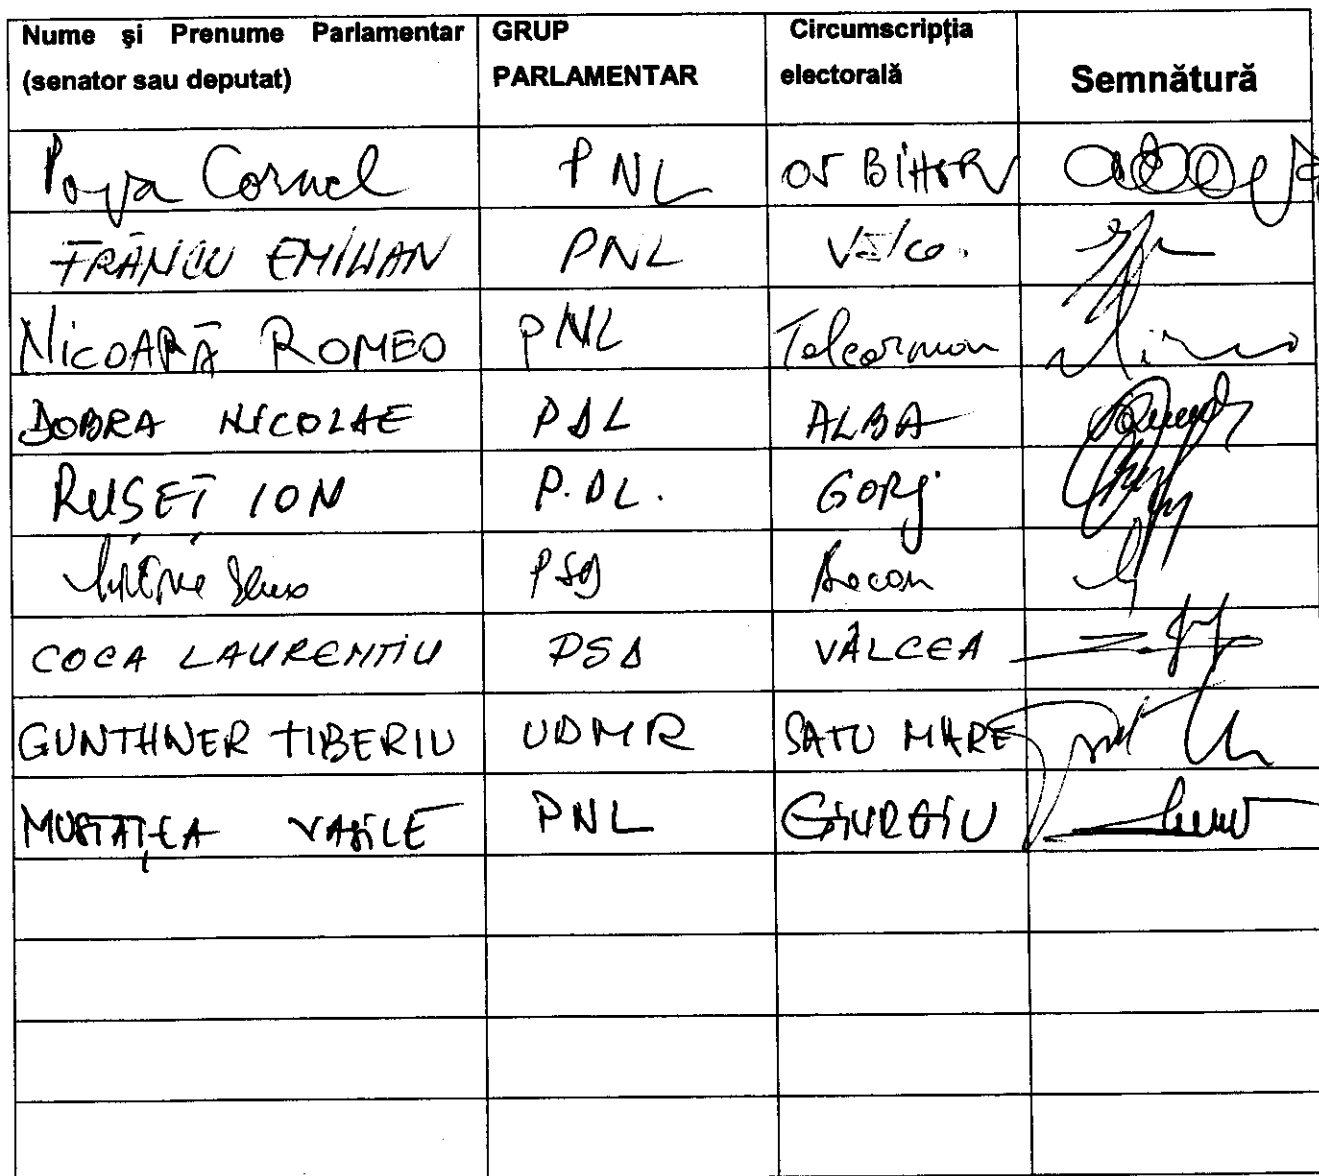 Nume şi Prenume Parlamentar (senator sau deputat) GRUP PARLAMENTAR Circumscripţia electorală Semnătură
Popa Cornel PNL 05 BIHOR
FRÂNCU EMILIAN PNL Vâlcea
NICOARĂ ROMEO PNL Teleorman
DOBRA NICOLAE PDL ALBA
RUSEȚ ION P.DL. GORJ
PSD Bacau
COCA LAURENȚIU PSD VÂLCEA
GUNTHNER TIBERIU UDMR SATU MARE
MUSTAȚEA VASILE PNL GIURGIU